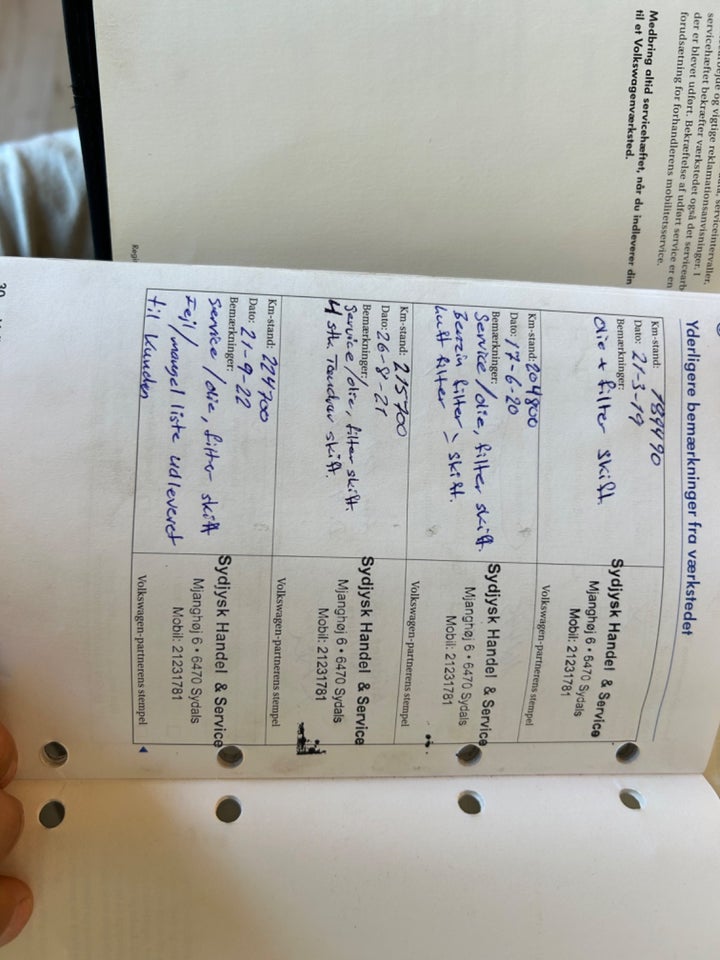 servicehæftet bekræfter værkstedet også det servicearb
der er blevet udført. Bekræftelse af udført service er en
forudsætning for forhandlerens mobilitetsservice.
Medbring altid servicehæftet, når du indleverer din
til et Volkswagenværksted.
Yderligere bemærkninger fra værkstedet
Km-stand: 189490
Dato: 21-3-19
Bemærkninger:
olie + filter skift.
Sydjysk Handel & Service
Mjanghøj 6 • 6470 Sydals
Mobil: 21231781
Volkswagen-partnerens stempel
Km-stand: 204800
Dato: 17-6-20
Bemærkninger:
Service/olie, filter skift.
Benzin filter > skift.
luft filter
Sydjysk Handel & Service
Mjanghøj 6 • 6470 Sydals
Mobil: 21231781
Volkswagen-partnerens stempel
Km-stand: 215700
Dato: 26-8-21
Bemærkninger:
Service/olie, filter skift.
4 stk Tændrør skift.
Sydjysk Handel & Service
Mjanghøj 6 • 6470 Sydals
Mobil: 21231781
Volkswagen-partnerens stempel
Km-stand: 224700
Dato: 21-9-22
Bemærkninger:
Service/olie, filter skift
Fejl/mangel liste udleveret
til kunden
Sydjysk Handel & Service
Mjanghøj 6 • 6470 Sydals
Mobil: 21231781
Volkswagen-partnerens stempel